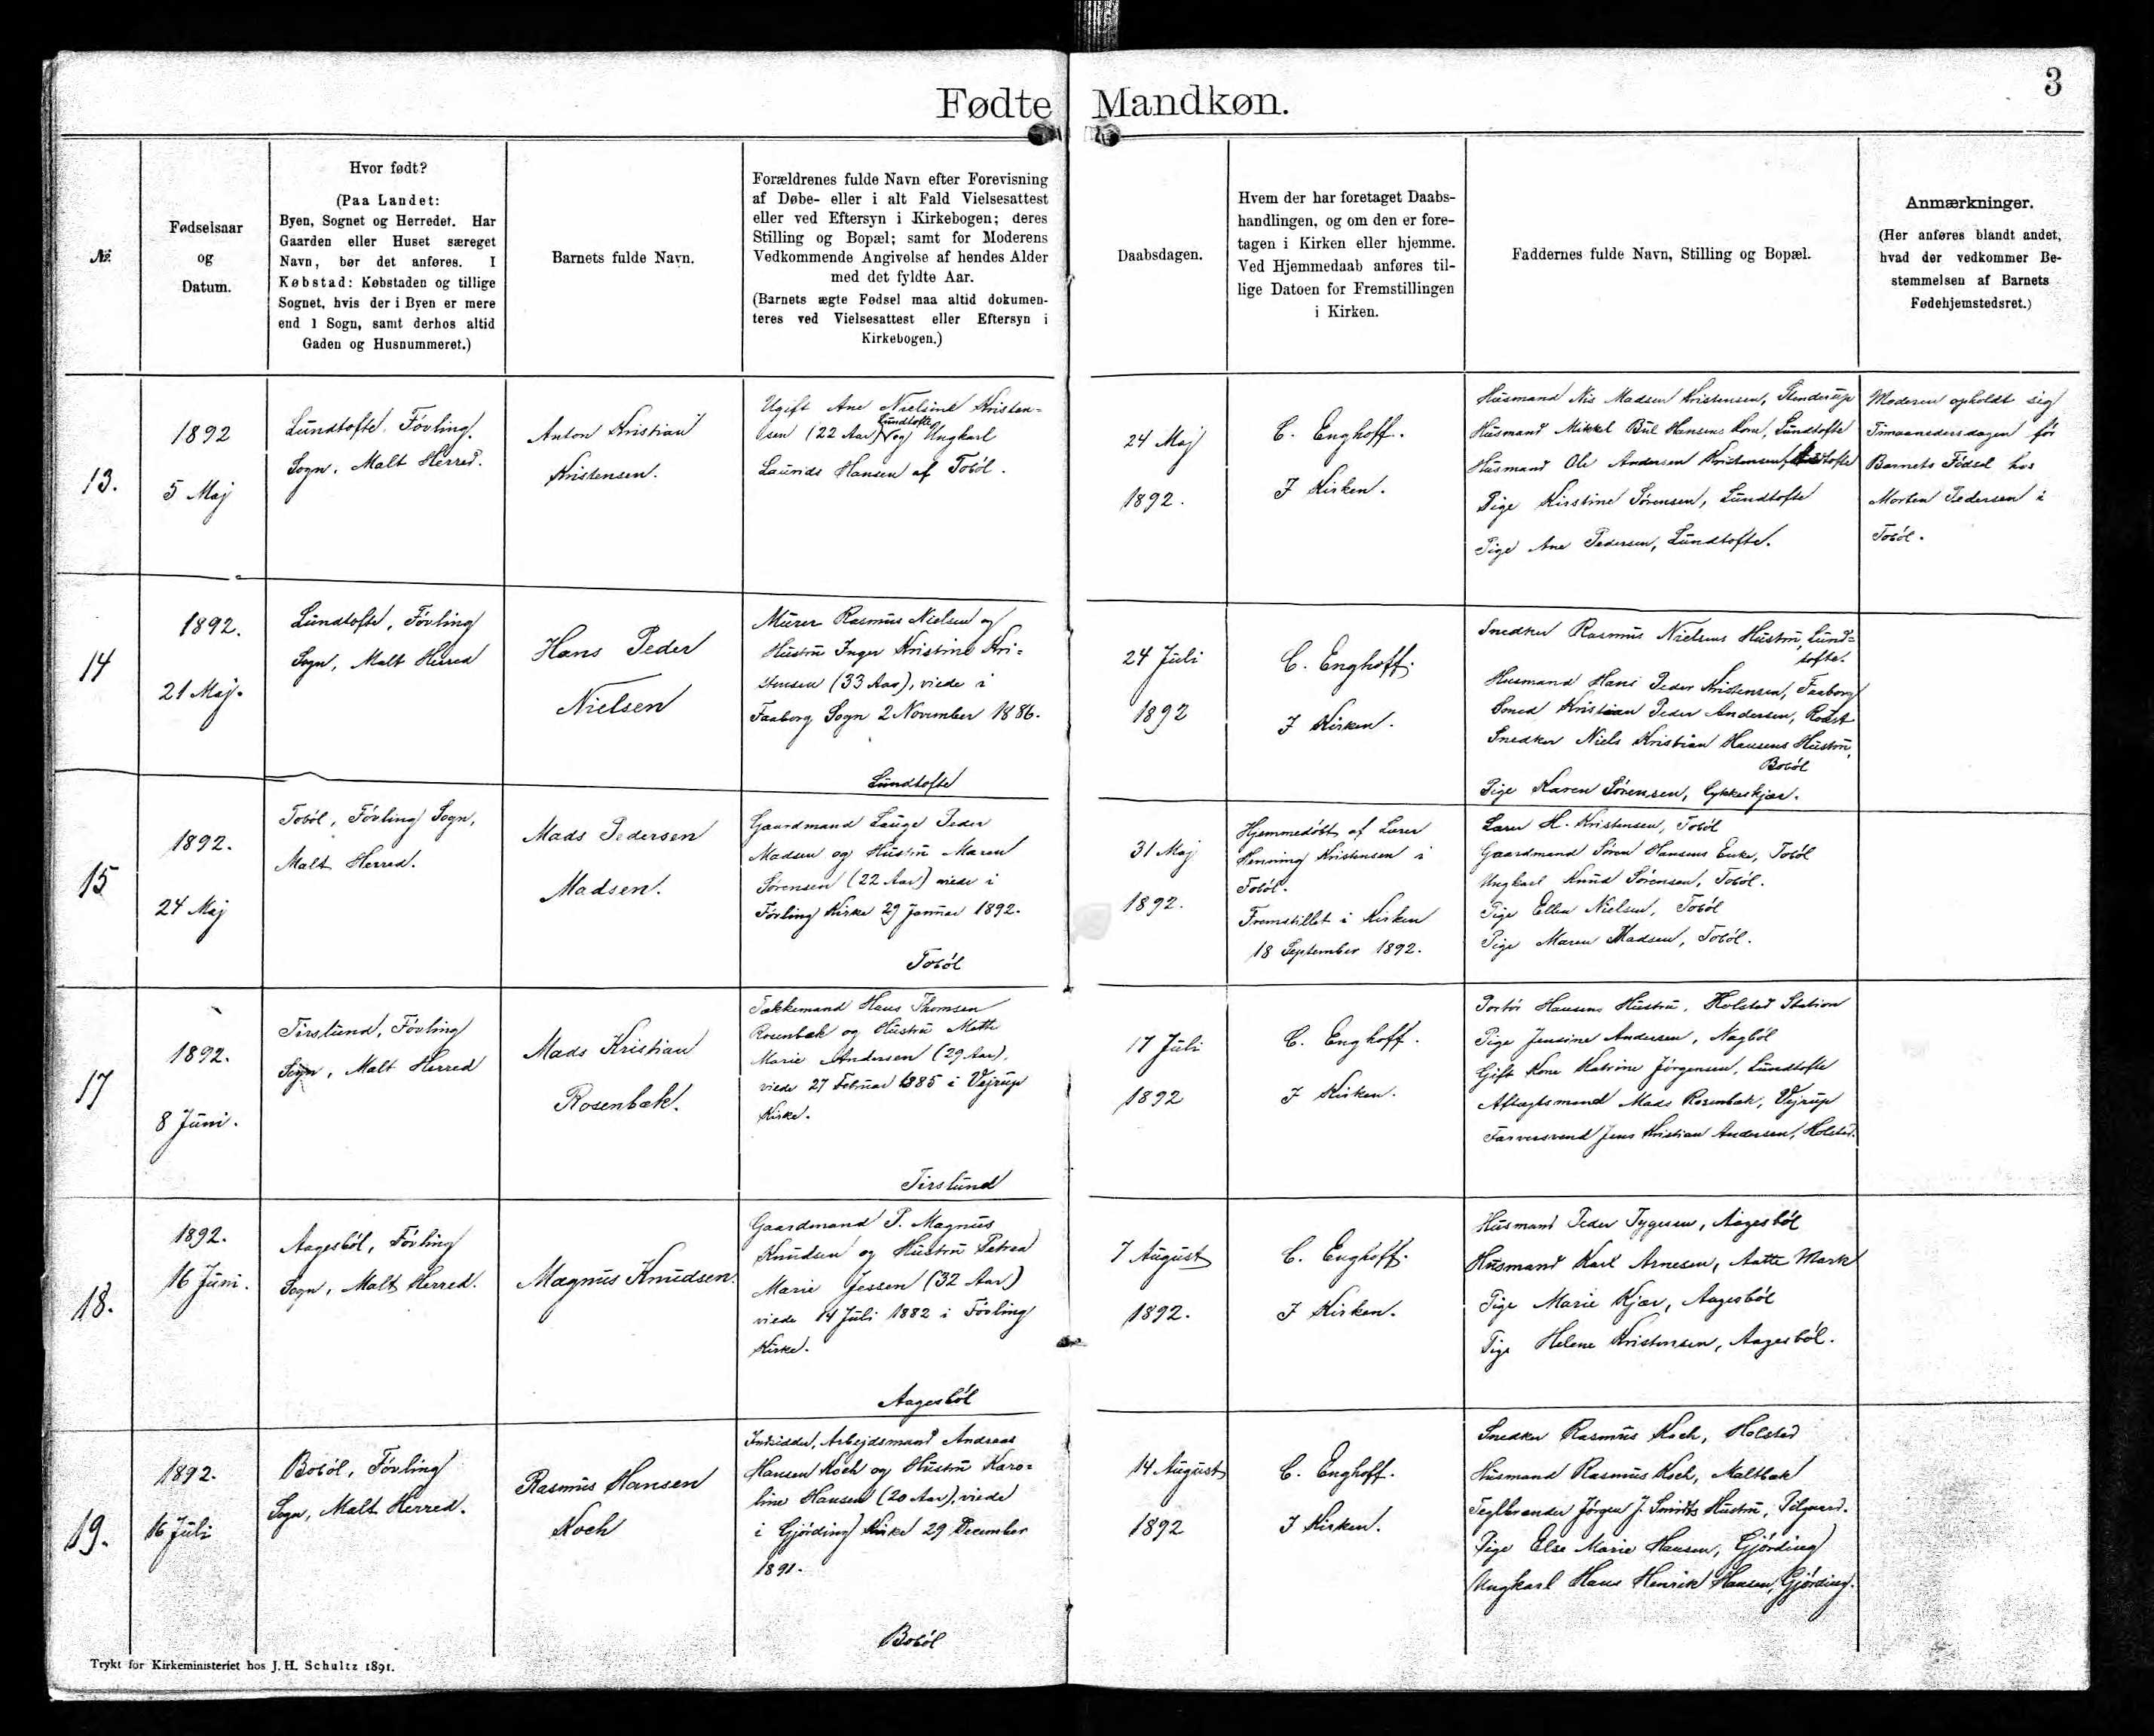 Fødte Mandkøn.
3
№
Fødselsaar
og
Datum.
Hvor født?
(Paa Landet:
Byen, Sognet og Herredet. Har
Gaarden eller Huset særeget
Navn, bør det anføres. I
Købstad: Købstaden og tillige
Sognet, hvis der i Byen er mere
end 1 Sogn, samt derhos altid
Gaden og Husnummeret.)
Barnets fulde Navn.
Forældrenes fulde Navn efter Forevisning
af Døbe- eller i alt Fald Vielsesattest
eller ved Eftersyn i Kirkebogen; deres
Stilling og Bopæl; samt for Moderens
Vedkommende Angivelse af hendes Alder
med det fyldte Aar.
(Barnets ægte Fødsel maa altid dokumen-
teres ved Vielsesattest eller Eftersyn i
Kirkebogen.)
Daabsdagen.
Hvem der har foretaget Daabs-
handlingen, og om den er fore-
tagen i Kirken eller hjemme.
Ved Hjemmedaab anføres til-
lige Datoen for Fremstillingen
i Kirken.
Faddernes fulde Navn, Stilling og Bopæl.
Anmærkninger.
(Her anføres blandt andet,
hvad der vedkommer Be-
stemmelsen af Barnets
Fødehjemstedsret.)
13.
1892
5 Maj
Lundtofte, Fövling
Sogn, Malt Herred.
Anton Kristian
Kristensen.
Ugift Ane Nielsine Kristen-
Lundtofte
sen (22 Aar) og Ungkarl
Laurids Hansen af Toböl.
24 Maj
1892.
C. Enghoff.
I Kirken.
Husmand Nis Madsen Kristensen, Stenderup
Husmand Mikkel Bül Hansens Kone, Lundtofte
Husmand Ole Andersen Kristensen, Lundtofte
Pige Kirstine Sörensen, Lundtofte
Pige Ane Pedersen, Lundtofte.
Moderen opholdt sig
Timaanedersdagen för
Barnets Födsel hos
Morten Pedersen i
Toböl.
14
1892.
21 Maj.
Lundtofte, Fövling
Sogn, Malt Herred
Hans Peder
Nielsen
Murer Rasmus Nielsen og
Hustru Inger Kristine Kri-
stensen (33 Aar), viede i
Faaborg Sogn 2 November 1886.
Lundtofte
24 Juli
1892
C. Enghoff.
I Kirken.
Snedker Rasmus Nielsens Hustru, Lund-
tofte.
Husmand Hans Peder Kristensen, Faaborg
Smed Kristian Peder Andersen, Roust
Snedker Niels Kristian Hansens Hustru,
Boböl
Pige Karen Sörensen, Lykkeskjær.
15
1892.
24 Maj
Toböl, Fövling Sogn,
Malt Herred.
Mads Pedersen
Madsen.
Gaardmand Lauge Peder
Madsen og Hustru Maren
Sörensen (22 Aar) viede i
Fövling Kirke 29 Januar 1892.
Toböl
31 Maj
1892.
Hjemmedöbt af Lærer
Henning Kristensen i
Toböl.
Fremstillet i Kirken
18 September 1892.
Lærer H. Kristensen, Toböl
Gaardmand Sören Hansens Enke, Toböl
Ungkarl Knud Sörensen, Toböl.
Pige Ellen Nielsen, Toböl
Pige Maren Madsen, Toböl.
17
1892.
8 Juni.
Tirslund, Fövling
Sogn, Malt Herred
Mads Kristian
Rosenbæk.
Tækkemand Hans Thomsen
Rosenbæk og Hustru Mette
Marie Andersen (29 Aar),
viede 27 Februar 1885 i Vejrup
Kirke.
Tirslund
17 Juli
1892
C. Enghoff.
I Kirken.
Portör Hansens Hustru, Holsted Station
Pige Jensine Andersen, Nagböl
Gift Kone Katrine Jörgensen, Lundtofte
Aftægtsmand Mads Rosenbæk, Vejrup
Farversvend Jens Kristian Andersen, Holsted.
18.
1892.
16 Juni.
Aagesböl, Fövling
Sogn, Malt Herred.
Magnus Knudsen.
Gaardmand P. Magnus
Knudsen og Hustru Petrea
Marie Jessen (32 Aar)
viede 14 Juli 1882 i Fövling
Kirke.
Aagesböl
7 August
1892.
C. Enghoff.
I Kirken.
Husmand Peder Tygesen, Aagesböl
Husmand Karl Arnesen, Aatte Mark
Pige Marie Kjær, Aagesböl
Pige Helene Kristensen, Aagesböl.
19.
1892.
16 Juli
Boböl, Fövling
Sogn, Malt Herred.
Rasmus Hansen
Koch
Indsidder, Arbejdsmand Andreas
Hansen Koch og Hustru Karo-
line Hansen (20 Aar), viede
i Gjörding Kirke 29 December
1891.
Boböl
14 August
1892
C. Enghoff.
I Kirken.
Snedker Rasmus Koch, Holsted
Husmand Rasmus Koch, Maltbæk
Teglbrænder Jörgen J. Smidts Hustru,
Pige Else Marie Hansen, Gjörding
Ungkarl Hans Henrik Hansen, Gjörding.
Trykt for Kirkeministeriet hos J. H. Schultz 1891.